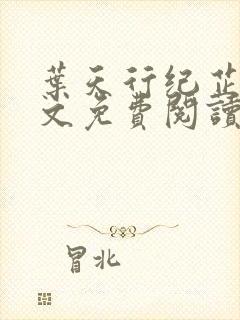 葉天行纪芷
文免費閱讀
冒北